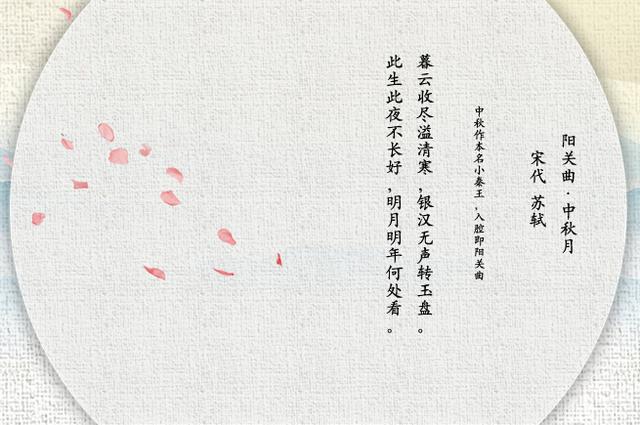 阳关曲·中秋月
宋代 苏轼
中秋作本名小秦王,入腔即阳关曲
暮云收尽溢清寒,银汉无声转玉盘。
此生此夜不长好,明月明年何处看。